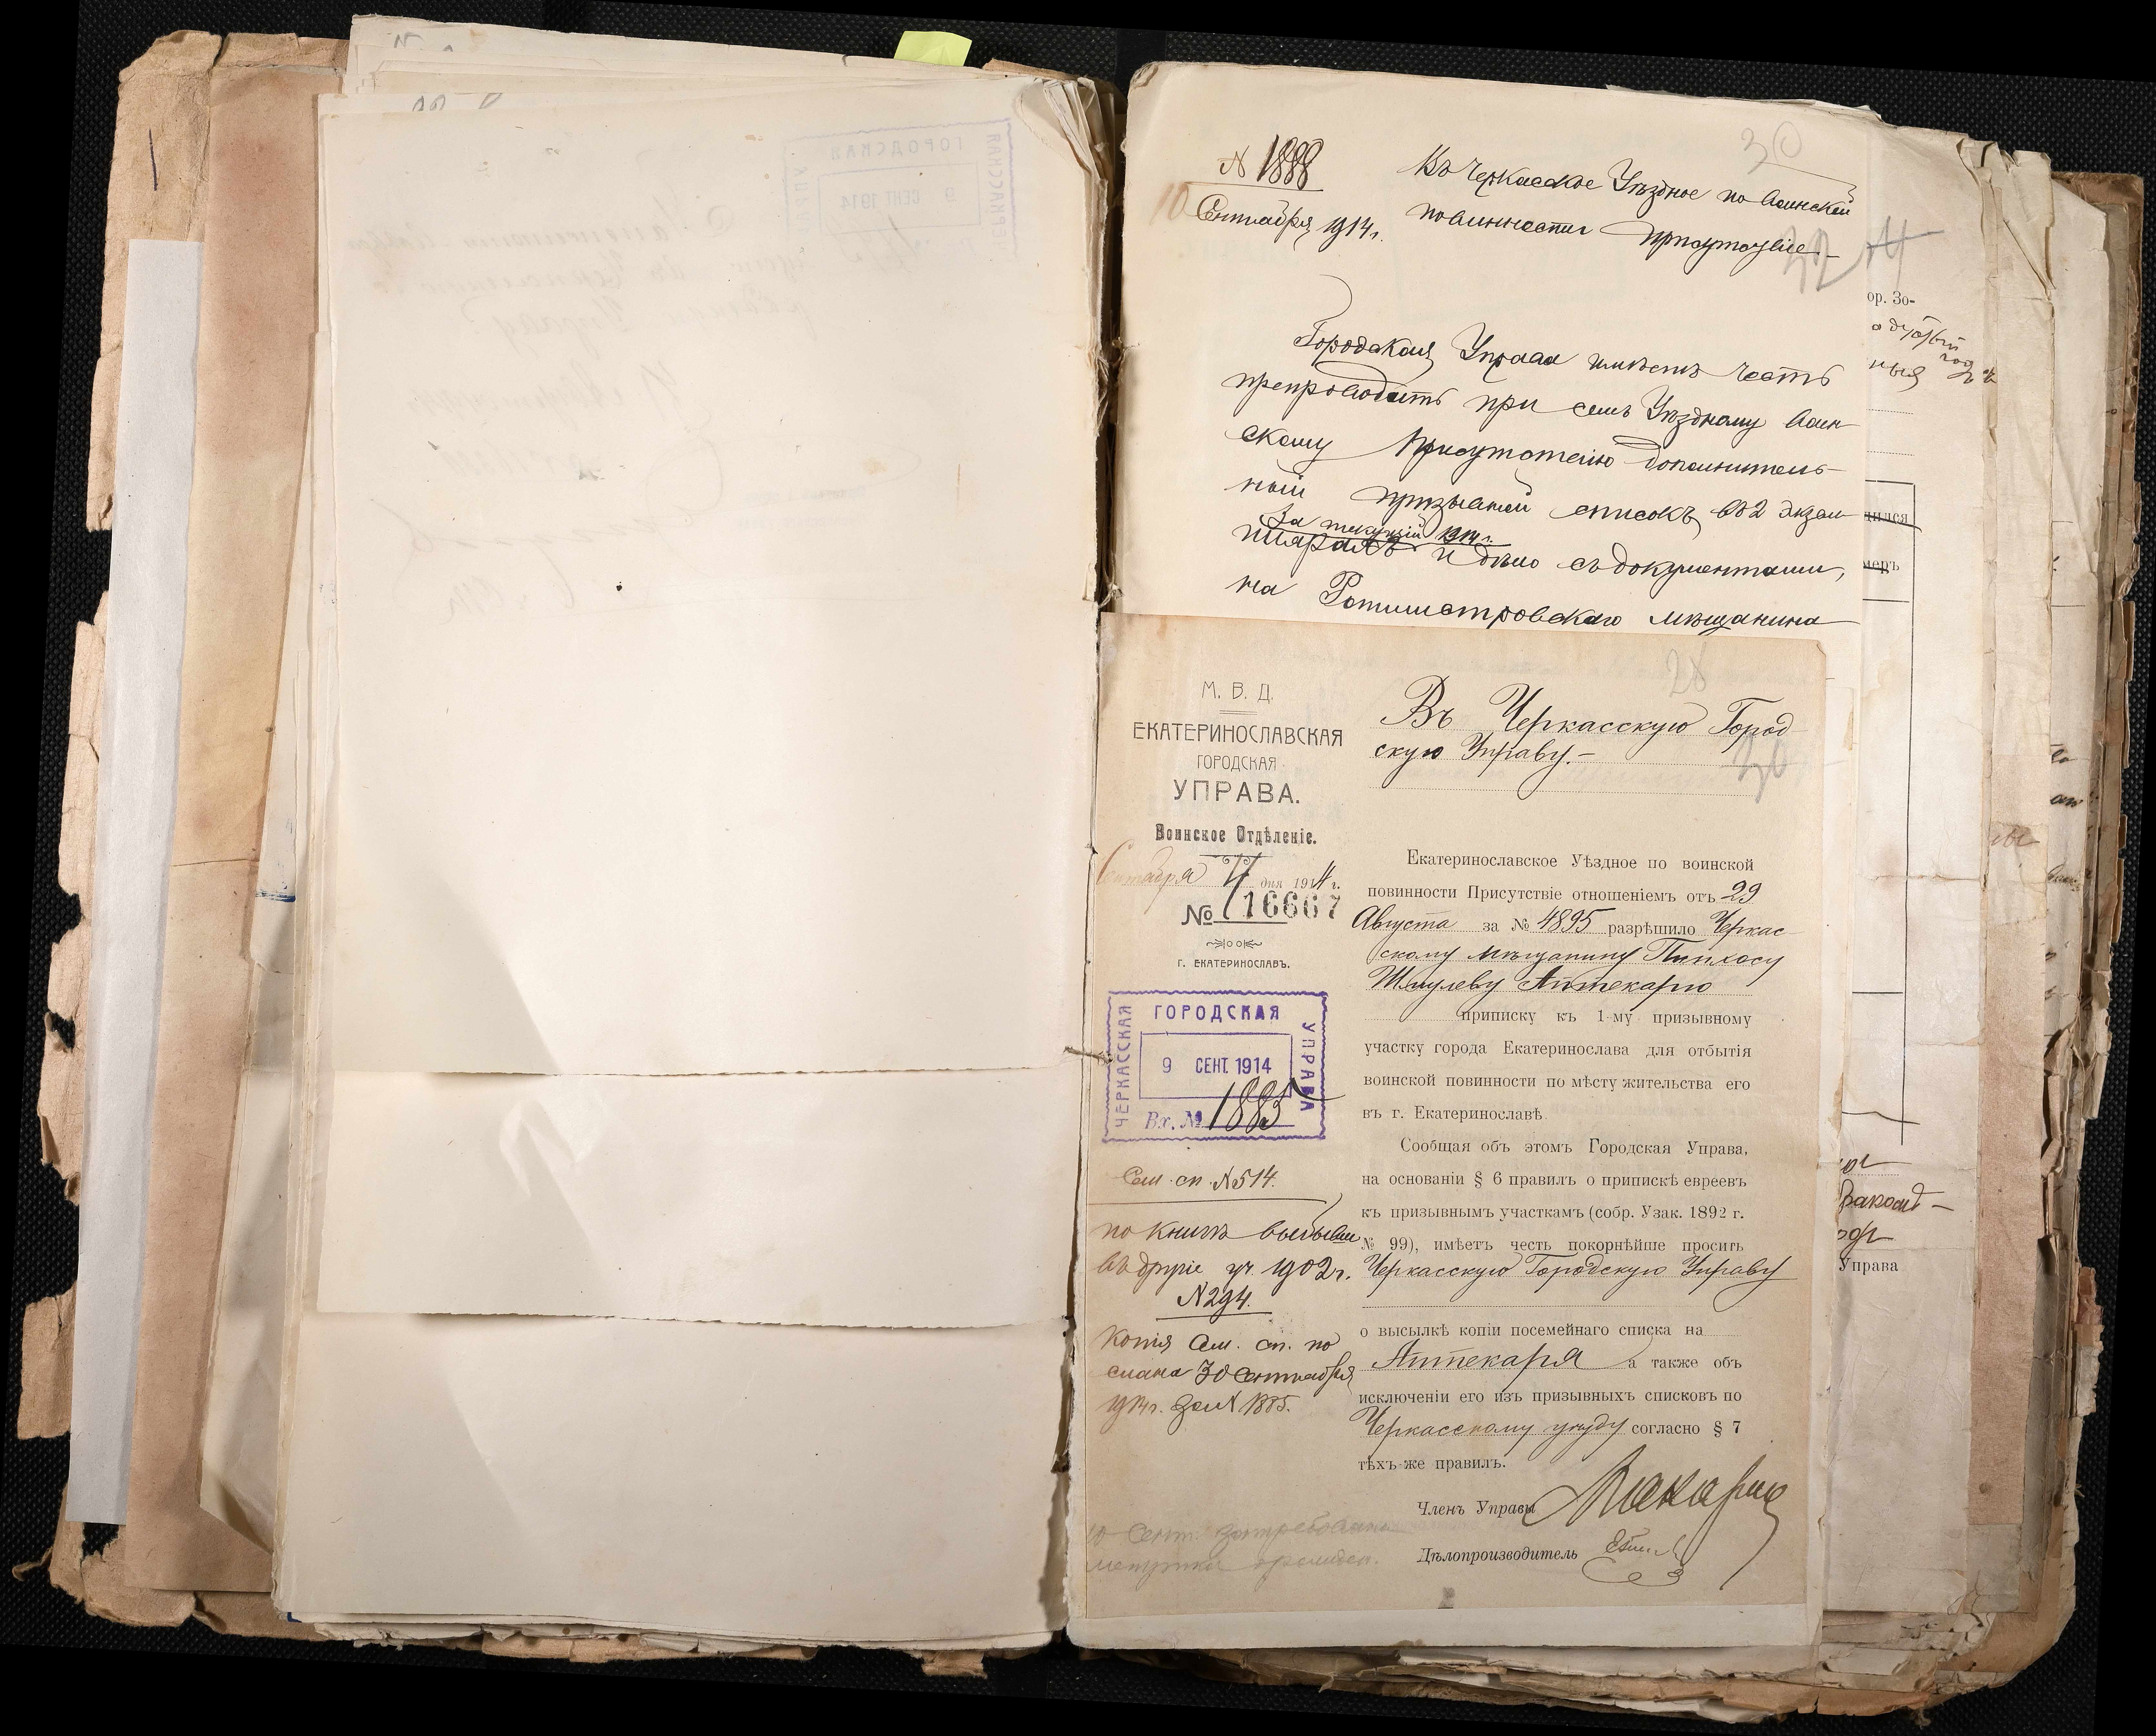 30
N 1888
10 Сентября 1914 г.
Въ Черкасское Уѣздное по воинской
повинности присутствіе
32
Городская Управа имѣетъ честь
препроводить при семъ Уѣздному Воин-
скому Присутствію дополнитель-
ный призывной списокъ въ 2 экзем-
за текущій 1914 г.
плярахъ и дѣло съ документами,
на Ротмистровскаго мѣщанина
ор. Зо-
ныя
дился
меръ
Управа
28
М. В. Д.
ЕКАТЕРИНОСЛАВСКАЯ
ГОРОДСКАЯ
УПРАВА.
Воинское Отдѣленіе.
Сентября 4 дня 1914 г.
№ 16667
г. ЕКАТЕРИНОСЛАВЪ.
ЧЕРКАССКАЯ
ГОРОДСКАЯ
УПРАВА
9 СЕНТ. 1914
Вх. № 1885
Сем. сп. №514.
по книгѣ выбывш
въ другіе уч. 1902 г.
N 294.
Копія сем. сп. по
слана 30 Сентября
1914 г. за N 1885.
10 Сент. затребована
Въ Черкасскую Город
скую Управу.-
30
Екатеринославское Уѣздное по воинской
повинности Присутствіе отношеніемъ отъ 29
Августа за № 4895 разрѣшило Черкас-
скому мѣщанину Пинхосу
Шмулеву Аптекарю
приписку къ 1-му призывному
участку города Екатеринослава для отбытія
воинской повинности по мѣсту жительства его
въ г. Екатеринославѣ
Сообщая объ этомъ Городская Управа,
на основаніи § 6 правилъ о припискѣ евреевъ
къ призывнымъ участкамъ (собр. Узак. 1892 г.
№ 99), имѣетъ честь покорнѣйше просить
Черкасскую Городскую Управу
о высылкѣ копіи посемейнаго списка на
Аптекаря а также объ
исключеніи его изъ призывныхъ списковъ по
Черкасскому уѣзду согласно § 7
тѣхъ-же правилъ.
Членъ Управы
Дѣлопроизводитель